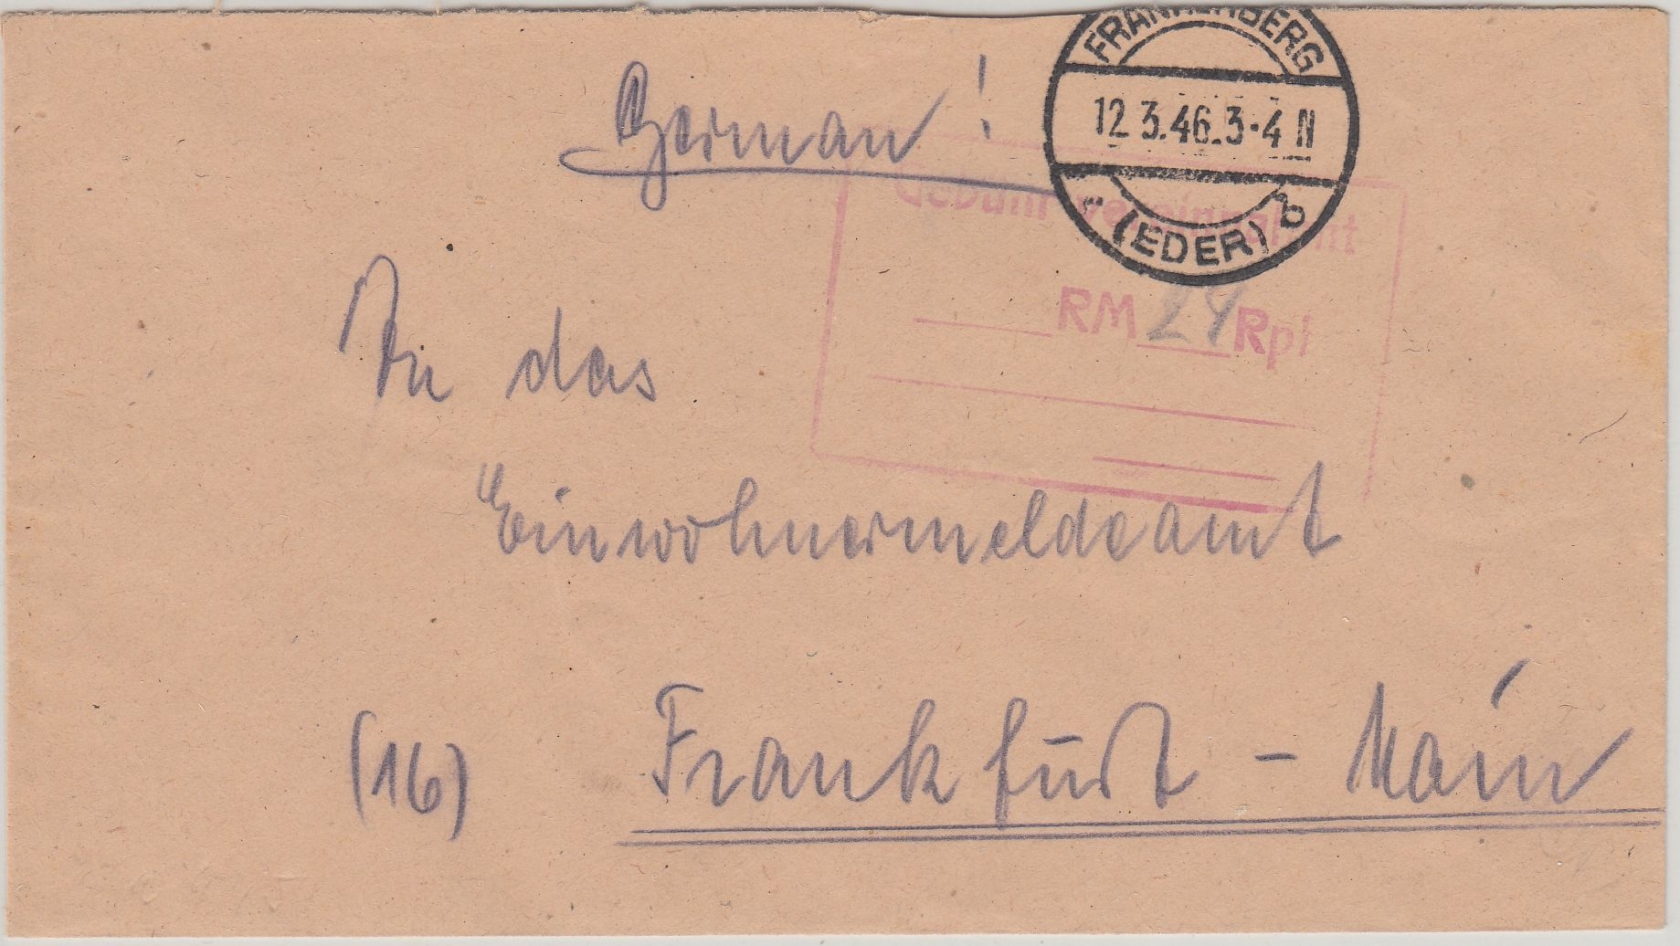 German!
FRANKENBERG
12.3.46.3-4 N
(EDER) b
Gebühr vereinnahmt
RM 24 Rpf
An das
Einwohnermeldeamt
(16) Frankfurt - Main